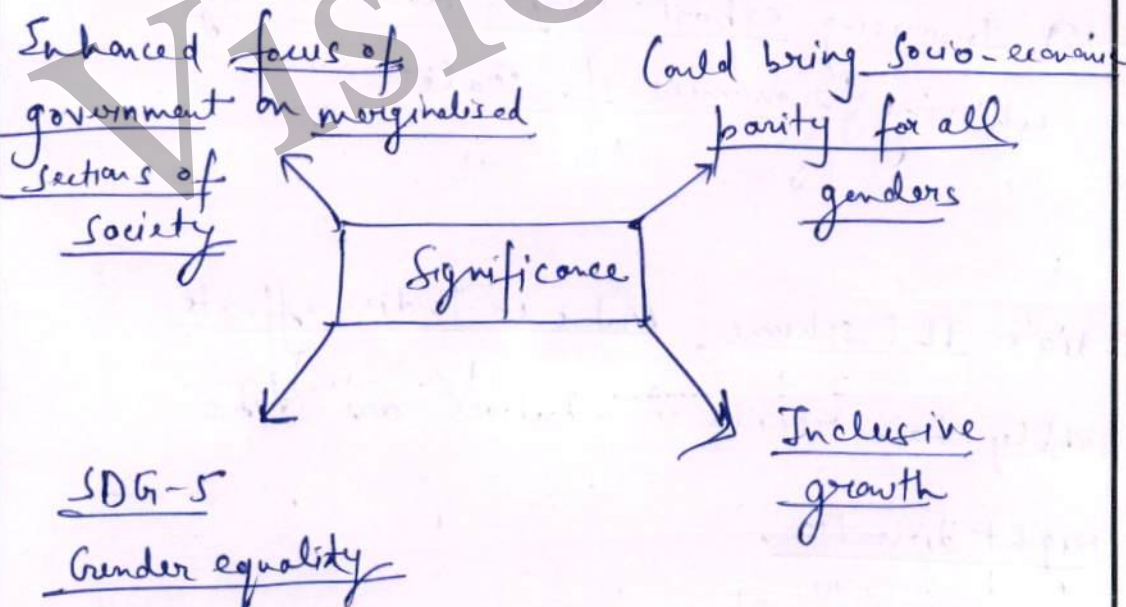 Enhanced focus of
government on marginalised
sections of
society
Could bring socio-economic
parity for all
genders
Significance
SDG-5
Gender equality
Inclusive
growth